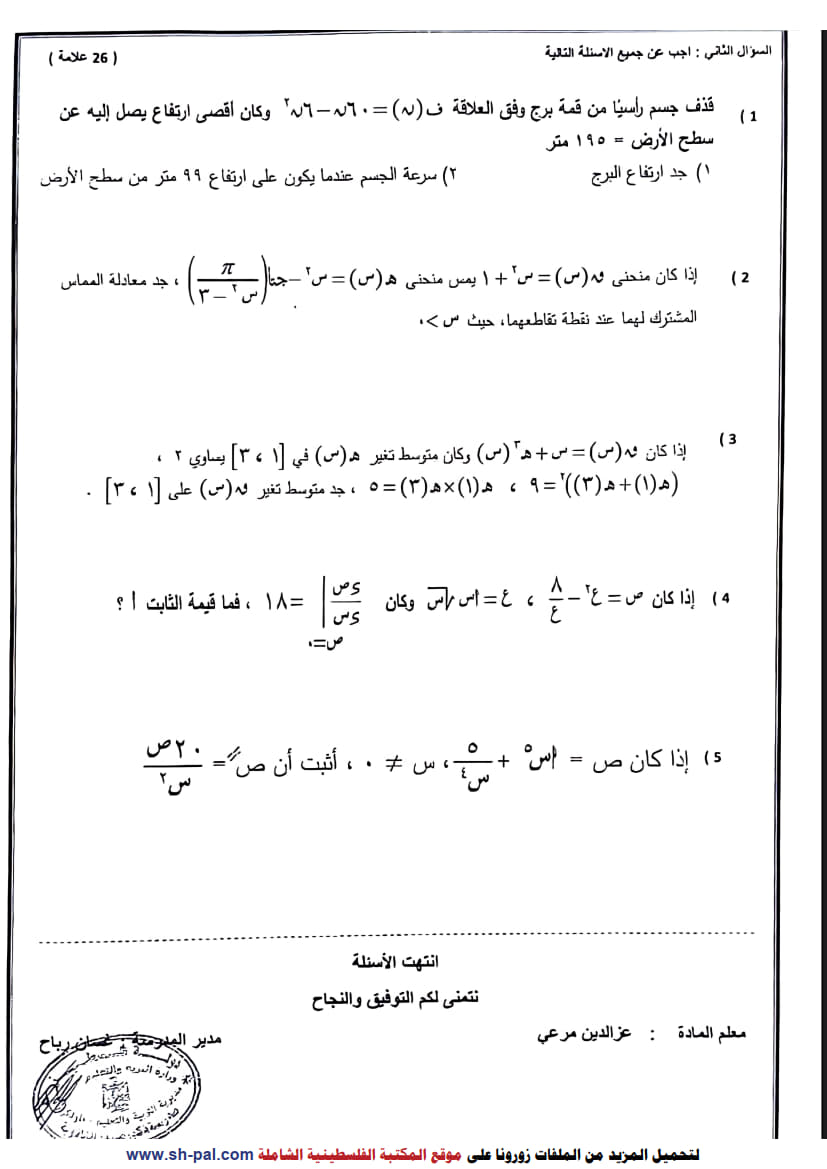 السؤال الثاني : اجب عن جميع الاسئلة التالية ( 26 علامة )
1) قذف جسم رأسيًا من قمة برج وفق العلاقة ف(ن) = ٦٠ن − ٦ن² وكان أقصى ارتفاع يصل إليه عن
سطح الأرض = ١٩٥ متر
١) جد ارتفاع البرج ٢) سرعة الجسم عندما يكون على ارتفاع ٩٩ متر من سطح الأرض
2) إذا كان منحنى ق(س) = س² + ١ يمس منحنى هـ(س) = س² − جتا(π / (س² − ٣)) ، جد معادلة المماس
المشترك لهما عند نقطة تقاطعهما، حيث س >٠
3) إذا كان ق(س) = س + هـ³(س) وكان متوسط تغير هـ(س) في [١ ، ٣] يساوي ٢ ،
(هـ(١) + هـ(٣))² = ٩ ، هـ(١)×هـ(٣) = ٥ ، جد متوسط تغير ق(س) على [١ ، ٣] .
4) إذا كان ص = ع² − ٨/ع ، ع = أس√س وكان ءص/ءس | ص=٠ = ١٨ ، فما قيمة الثابت أ ؟
5) إذا كان ص = أس⁵ + ٥/س⁴ ، س ≠ ٠ ، أثبت أن ص″ = ٢٠ص/س²
انتهت الأسئلة
نتمنى لكم التوفيق والنجاح
معلم المادة : عزالدين مرعي مدير المدرسة : غسان رباح
وزارة التربية والتعليم
لتحميل المزيد من الملفات زورونا على موقع المكتبة الفلسطينية الشاملة www.sh-pal.com